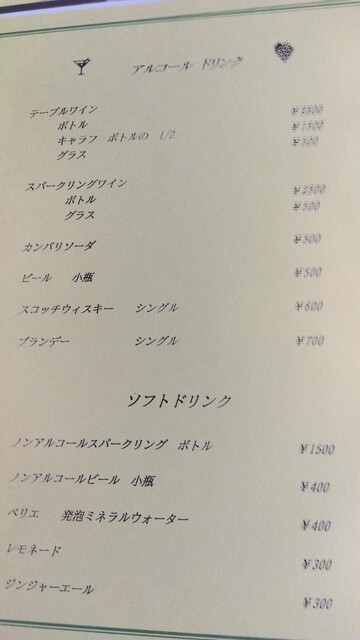 アルコール ドリンク
テーブルワイン
ボトル ¥2500
キャラフ ボトルの 1/2 ¥1500
グラス ¥500
スパークリングワイン
ボトル ¥2500
グラス ¥500
カンパリソーダ ¥500
ビール 小瓶 ¥500
スコッチウィスキー シングル ¥600
ブランデー シングル ¥700
ソフトドリンク
ノンアルコールスパークリング ボトル ¥1500
ノンアルコールビール 小瓶 ¥400
ペリエ 発泡ミネラルウォーター ¥400
レモネード ¥300
ジンジャーエール ¥300